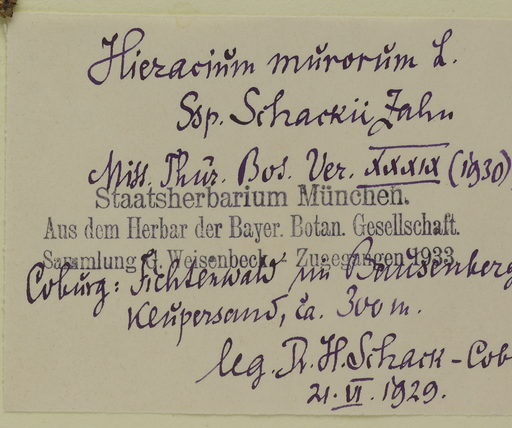 Hieracium murorum L.
Ssp. Schackii Zahn
Mitt. Thür. Bot. Ver. XXXIX (1930)
Staatsherbarium München.
Aus dem Herbar der Bayer. Botan. Gesellschaft.
Sammlung G. Weisenbeck Zugegangen 1933
Coburg: Fichtenwald im Bausenberg
Keupersand, ca. 300 m.
leg. Dr. H. Schack - Cob
21. VI. 1929.